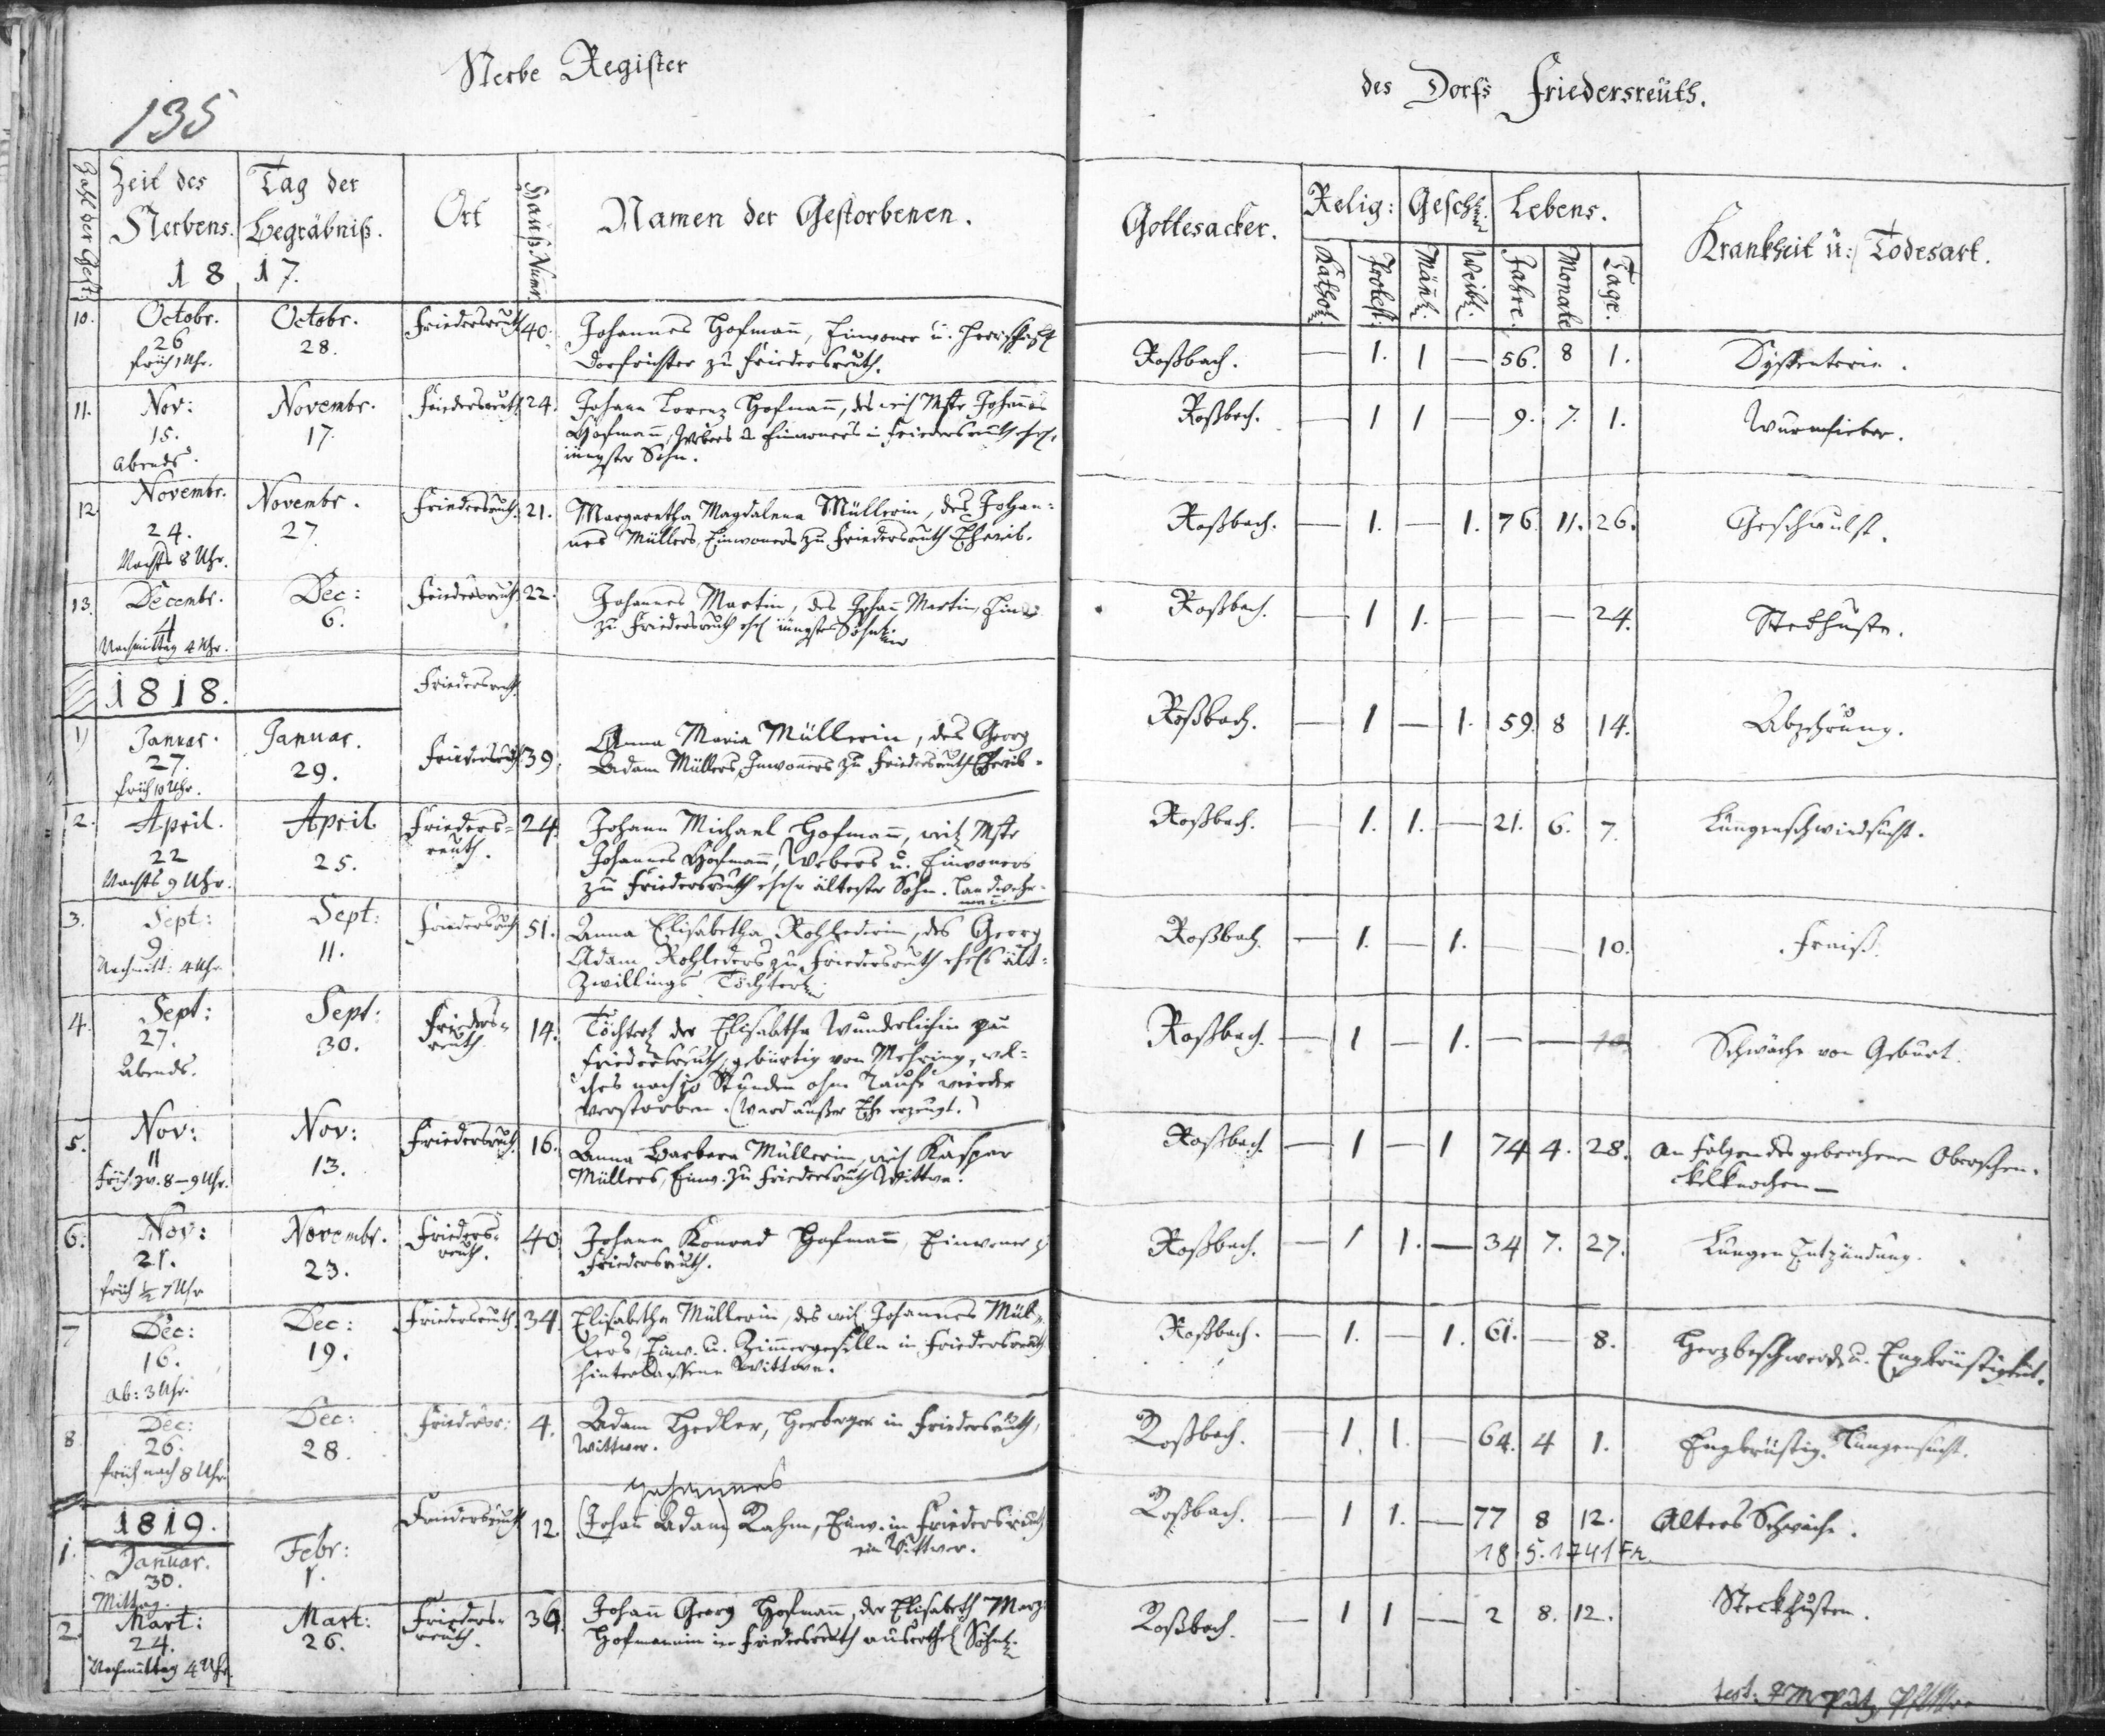 Sterbe Register
des Dorfs Friedersreuth.
135
Zahl der Gest:
Zeit des Sterbens.
Tag der Begräbniß.
Ort
Hauß Numr.
Namen der Gestorbenen.
Gottesacker.
Relig:
Geschl.
Lebens.
Krankheit u: Todesart.
Kathol.
Protest.
Mänl.
Weibl.
Jahre.
Monate
Tage.
1817.
10. Octobr. Octobr. Friedersreuth 40. Johannes Hofmann, Einwoner u. Herrschaftl Roßbach. — 1. 1 — 56. 8 1. Dyssenterie.
26 28. Dorfrichter zu Friedersreuth.
früh 1 Uhr.
11. Nov: Novembr. Friedersreuth 24. Johann Lorenz Hofmann, des weil Mstr Johannes Roßbach. — 1 1 — 9. 7. 1. Wurmfieber.
15. 17. Hofmann, Webers u Einwoners in Friedersreuth ehel.
Abends. jüngster Sohn.
12 Novembr. Novembr. Friedersreuth. 21. Margaretha Magdalena Müllerin, des Johan= Roßbach. — 1. — 1. 76. 11. 26. Geschwulst.
24. 27 nes Müllers, Einwoners zu Friedersreuth Eheweib.
Nachts 8 Uhr.
13. Decembr. Dec: Friedersreuth 22. Johannes Martin, des Johann Martin, Einw. Roßbach. — 1 1. — — — 24. Steckhusten.
4 6. zu Friedersreuth ehel jüngstes Söhnl.
Nachmittag 4 Uhr.
1818. Friedersreuth
1) Januar. Januar. Friedersreuth 39. Anna Maria Müllerin, des Georg Roßbach. — 1 — 1. 59. 8 14. Abzehrung.
27. 29. Adam Müllers, Innwoners zu Friedersreuth Eheweib.
früh 10 Uhr.
2. April. April. Frieders= 24. Johann Michael Hofmann, weil Mstr Roßbach. — 1. 1. — 21. 6. 7. Lungenschwindsucht.
22 25. reuth. Johannes Hofmann, Webers u. Einwoners
Nachts 9 Uhr. zu Friedersreuth ehel. ältester Sohn. Landwehr=
mann
3. Sept: Sept: Friedersreuth 51. Anna Elisabetha Rohlederin, des Georg Roßbach. — 1. — 1. — — 10. Fraiß.
9 11. Adam Rohleders zu Friedersreuth ehel ält=
Nachmitt: 4 Uhr Zwillings Töchterl.
4. Sept: Sept: Frieders= 14. Töchterl der Elisabetha Wunderlichin zu Roßbach. — 1 — 1. — — 10 Schwäche von Geburt.
27. 30. reuth Friedersreuth, gebürtig von Mehring, wel=
Abends. ches nach 10 Stunden ohne Taufe wieder
verstorben. (Ward außer Ehe erzeugt.)
5. Nov: Nov: Friedersreuth. 16. Anna Barbara Müllerin, weil Kaspar Roßbach. — 1 — 1 74 4. 28. An Folgen des gebrochenen Oberschen=
11 13. Müllers, Einw. zu Friedersreuth Wittwe. ckelknochen —
Früh zw. 8–9 Uhr.
6. Nov: Novembr. Frieders= 40. Johann Konrad Hofmann, Einwoner z Roßbach. — 1 1. — 34 7. 27. Lungen Entzündung.
21. 23. reuth. Friedersreuth.
früh ½ 7 Uhr
7 Dec: Dec: Friedersreuth. 34. Elisabetha Müllerin, des weil Johannes Mül= Roßbach. — 1. — 1. 61. — 8. Herzbeschwerde u. Engbrüstigkeit.
16. 19. lers, Einw. u. Zimmergesellen in Friedersreuth
Ab: 3 Uhr. hinterlassene Wittwe.
8 Dec: Dec: Friedersr: 4. Adam Hedler, Herberger in Friedersreuth, Roßbach. — 1. 1. — 64. 4 1. Engbrüstig. Lungensucht.
26. 28. Wittwer.
früh nach 8 Uhr
1819. Johannes
1. Januar. Febr: Friedersreuth 12. (Johann Adam) Rahm, Einw. in Friedersreuth Roßbach. — 1 1. — 77 8 12. Alters Schwäche.
30. 1. ein Wittwer. 18.5.1741 Fr.
Mittag.
2. Mart: Mart: Frieders= 36. Johann Georg Hofmann, der Elisabeth Marg. Roßbach. — 1 1 — 2 8. 12. Steckhusten.
24. 26. reuth. Hofmannin in Friedersreuth auserehel Söhnl.
Nachmittag 4 Uhr.
test: